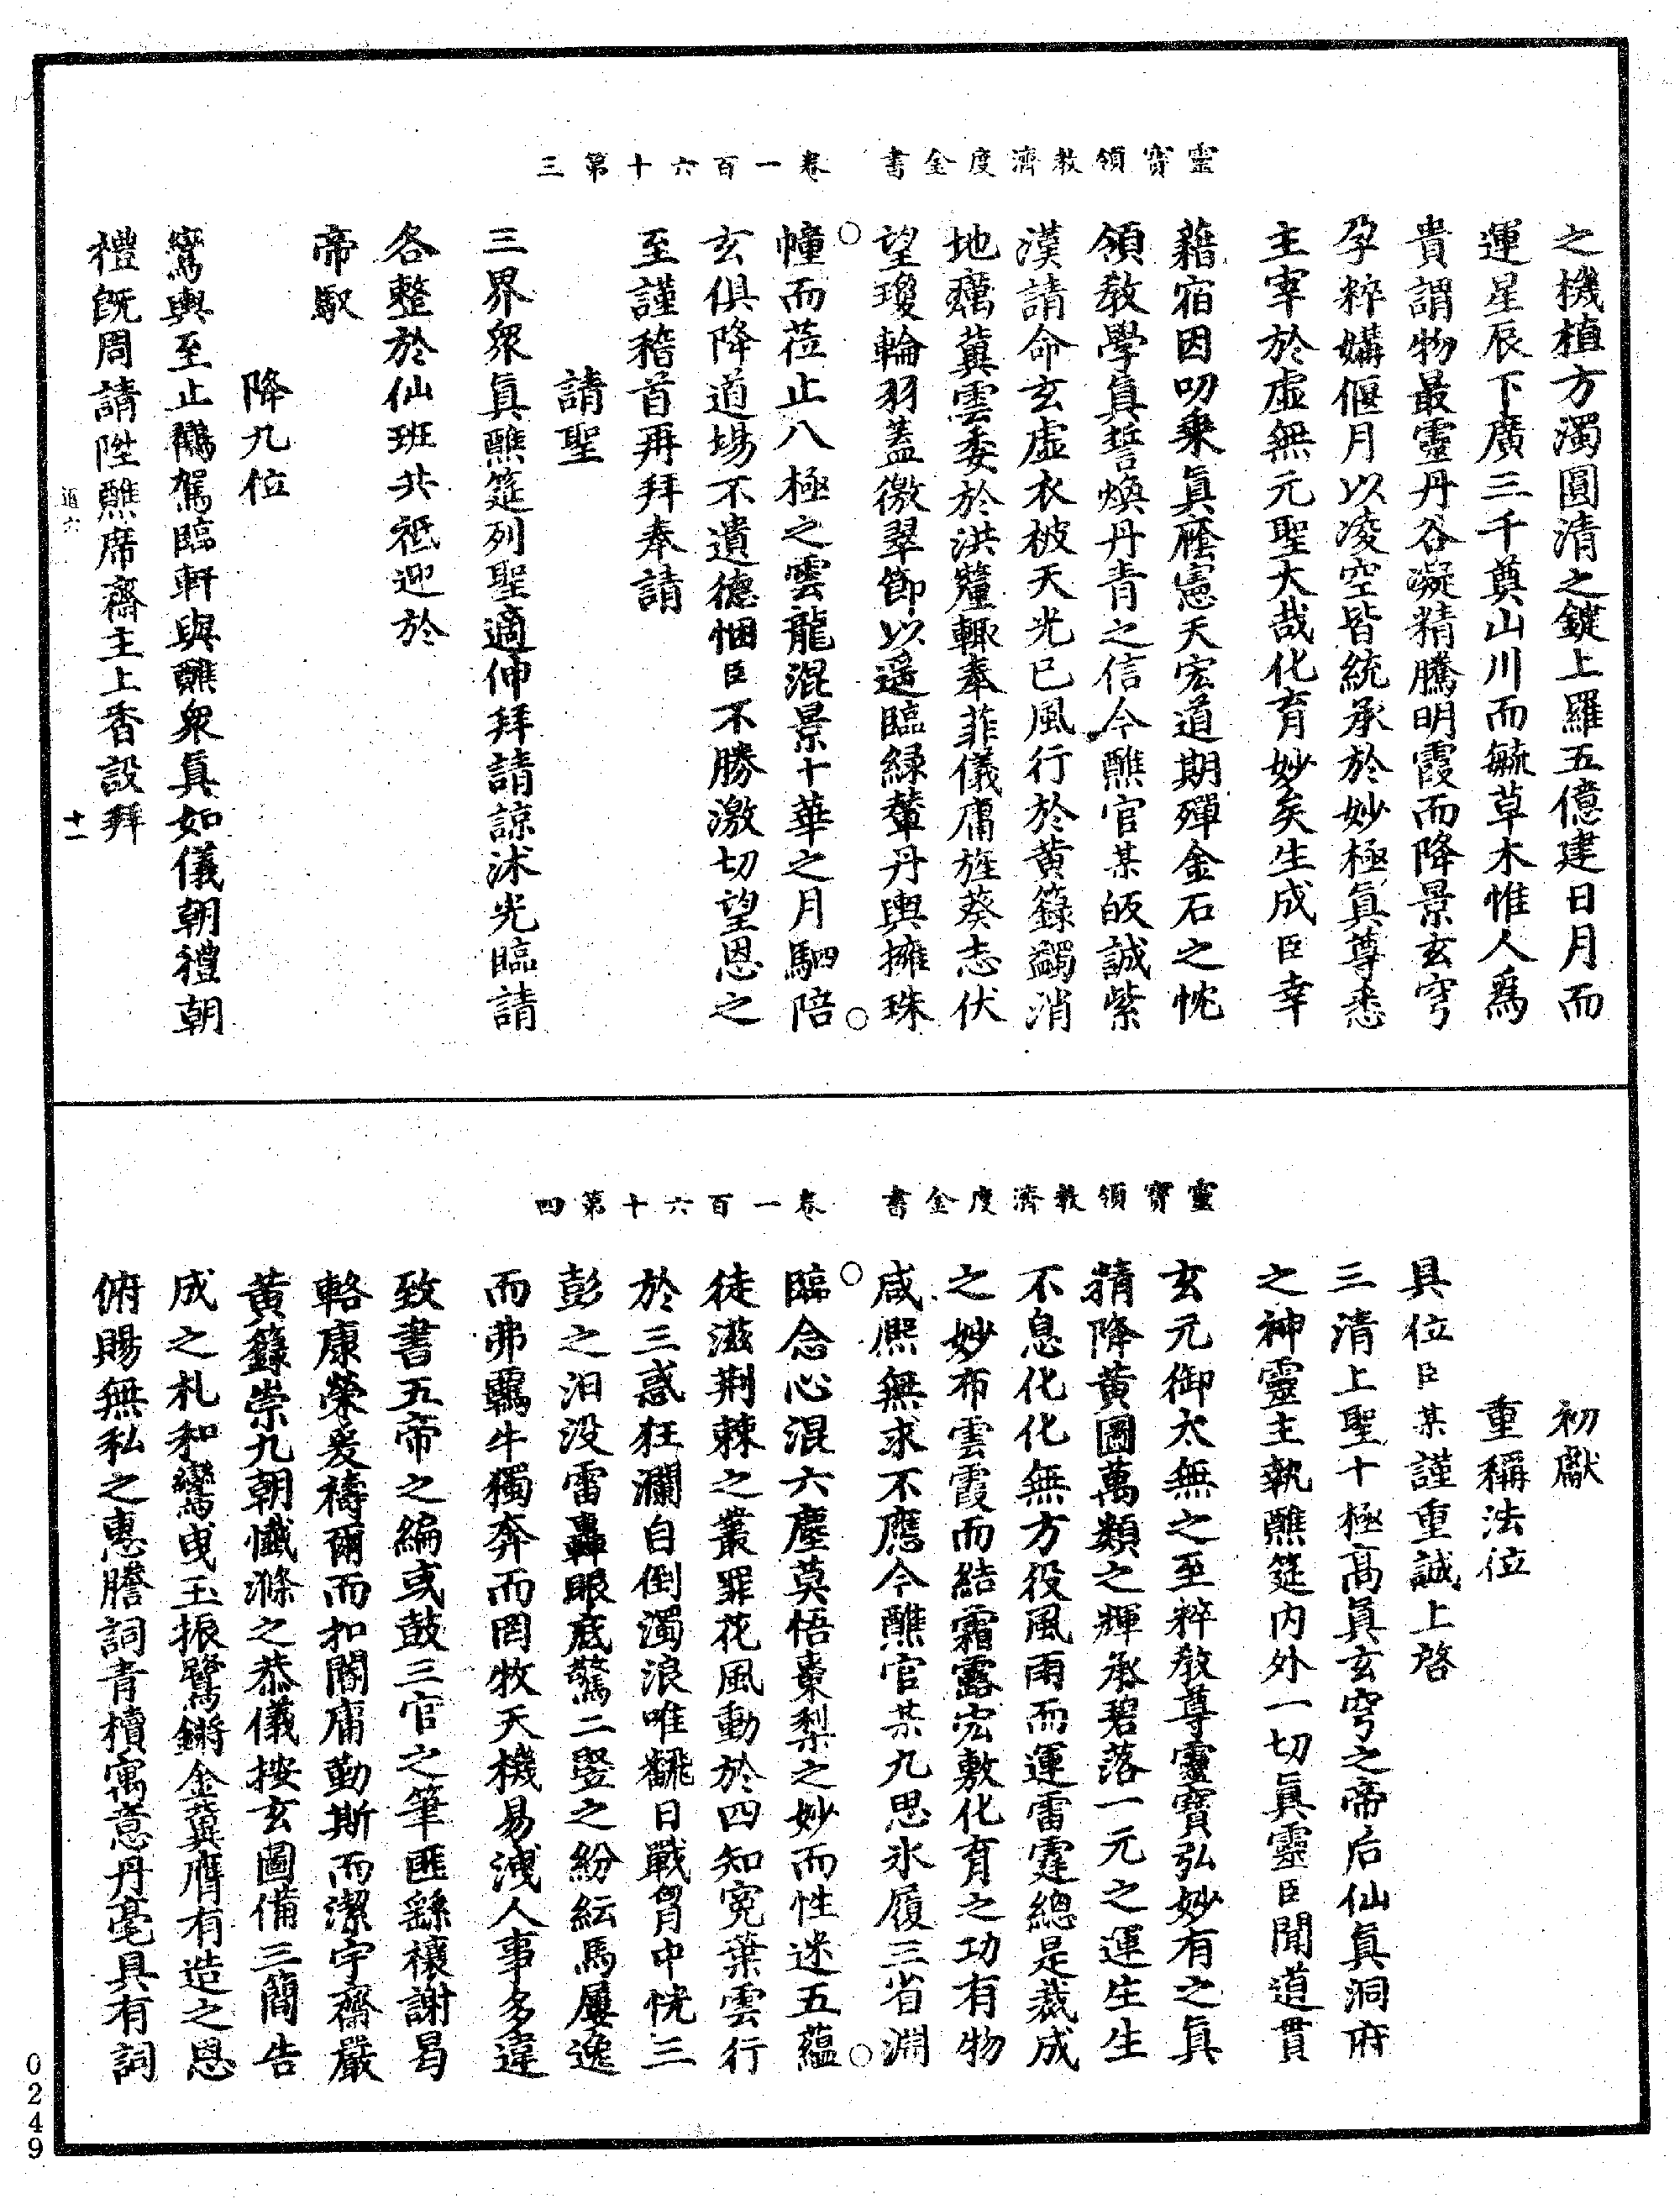 靈寶領教濟度金書　卷一百六十第三
之機植方濁圓清之鍵上羅五億建日月而
運星辰下廣三千奠山川而毓草木惟人爲
貴謂物最靈丹谷凝精騰明霞而降景玄穹
孕粹媾偃月以凌空皆統承於妙極眞尊悉
主宰於虛無元聖大哉化育妙矣生成臣幸
藉宿因叨乗眞廕憲天宏道期殫金石之忱
領教學眞誓煥丹青之信今醮官某皈誠紫
漢請命玄虛衣披天光已風行於黄籙蠲消
地癘冀雲委於洪釐輙奉菲儀庸旌葵志伏
望瓊輪羽蓋徹翠節以遥臨緑輦丹輿擁珠
幢而莅止八極之雲龍混景十華之月駟陪
玄俱降道場不遺德悃臣不勝激切望恩之
至謹稽首再拜奉請
請聖
三界衆眞醮筵列聖適伸拜請諒沐光臨請
各整於仙班共祗迎於
帝馭
降九位
鸞輿至止鶴駕臨軒與醮衆眞如儀朝禮朝
禮旣周請陞醮席齋主上香設拜
道六
十一
靈寶領教濟度金書　卷一百六十第四
初獻
重稱法位
具位臣某謹重誠上啓
三清上聖十極高眞玄穹之帝后仙眞洞府
之神靈主執醮筵内外一切眞靈臣聞道貫
玄元御太無之至粹敎尊靈寶弘妙有之眞
精降黄圖萬類之輝承碧落一元之運生生
不息化化無方役風雨而運雷霆總是裁成
之妙布雲霞而結霜露宏敷化育之功有物
咸熙無求不應今醮官某九思氷履三省淵
臨念心混六塵莫悟棗梨之妙而性迷五蘊
徒滋荆棘之叢罪花風動於四知寃葉雲行
於三惑狂瀾自倒濁浪唯飜日戰胷中恍三
彭之汨没雷轟眼底驚二竪之紛紜馬屢逸
而弗羈牛獨奔而罔牧天機易洩人事多違
致書五帝之編或鼓三官之筆匪繇禳謝曷
輅康榮爰禱爾而扣閽庸勤斯而潔宇齋嚴
黄籙崇九朝懺滌之恭儀按玄圖備三簡告
成之札和鸞曳玉振鷺鏘金冀膺有造之恩
俯賜無私之惠謄詞青櫝寓意丹毫具有詞
0249